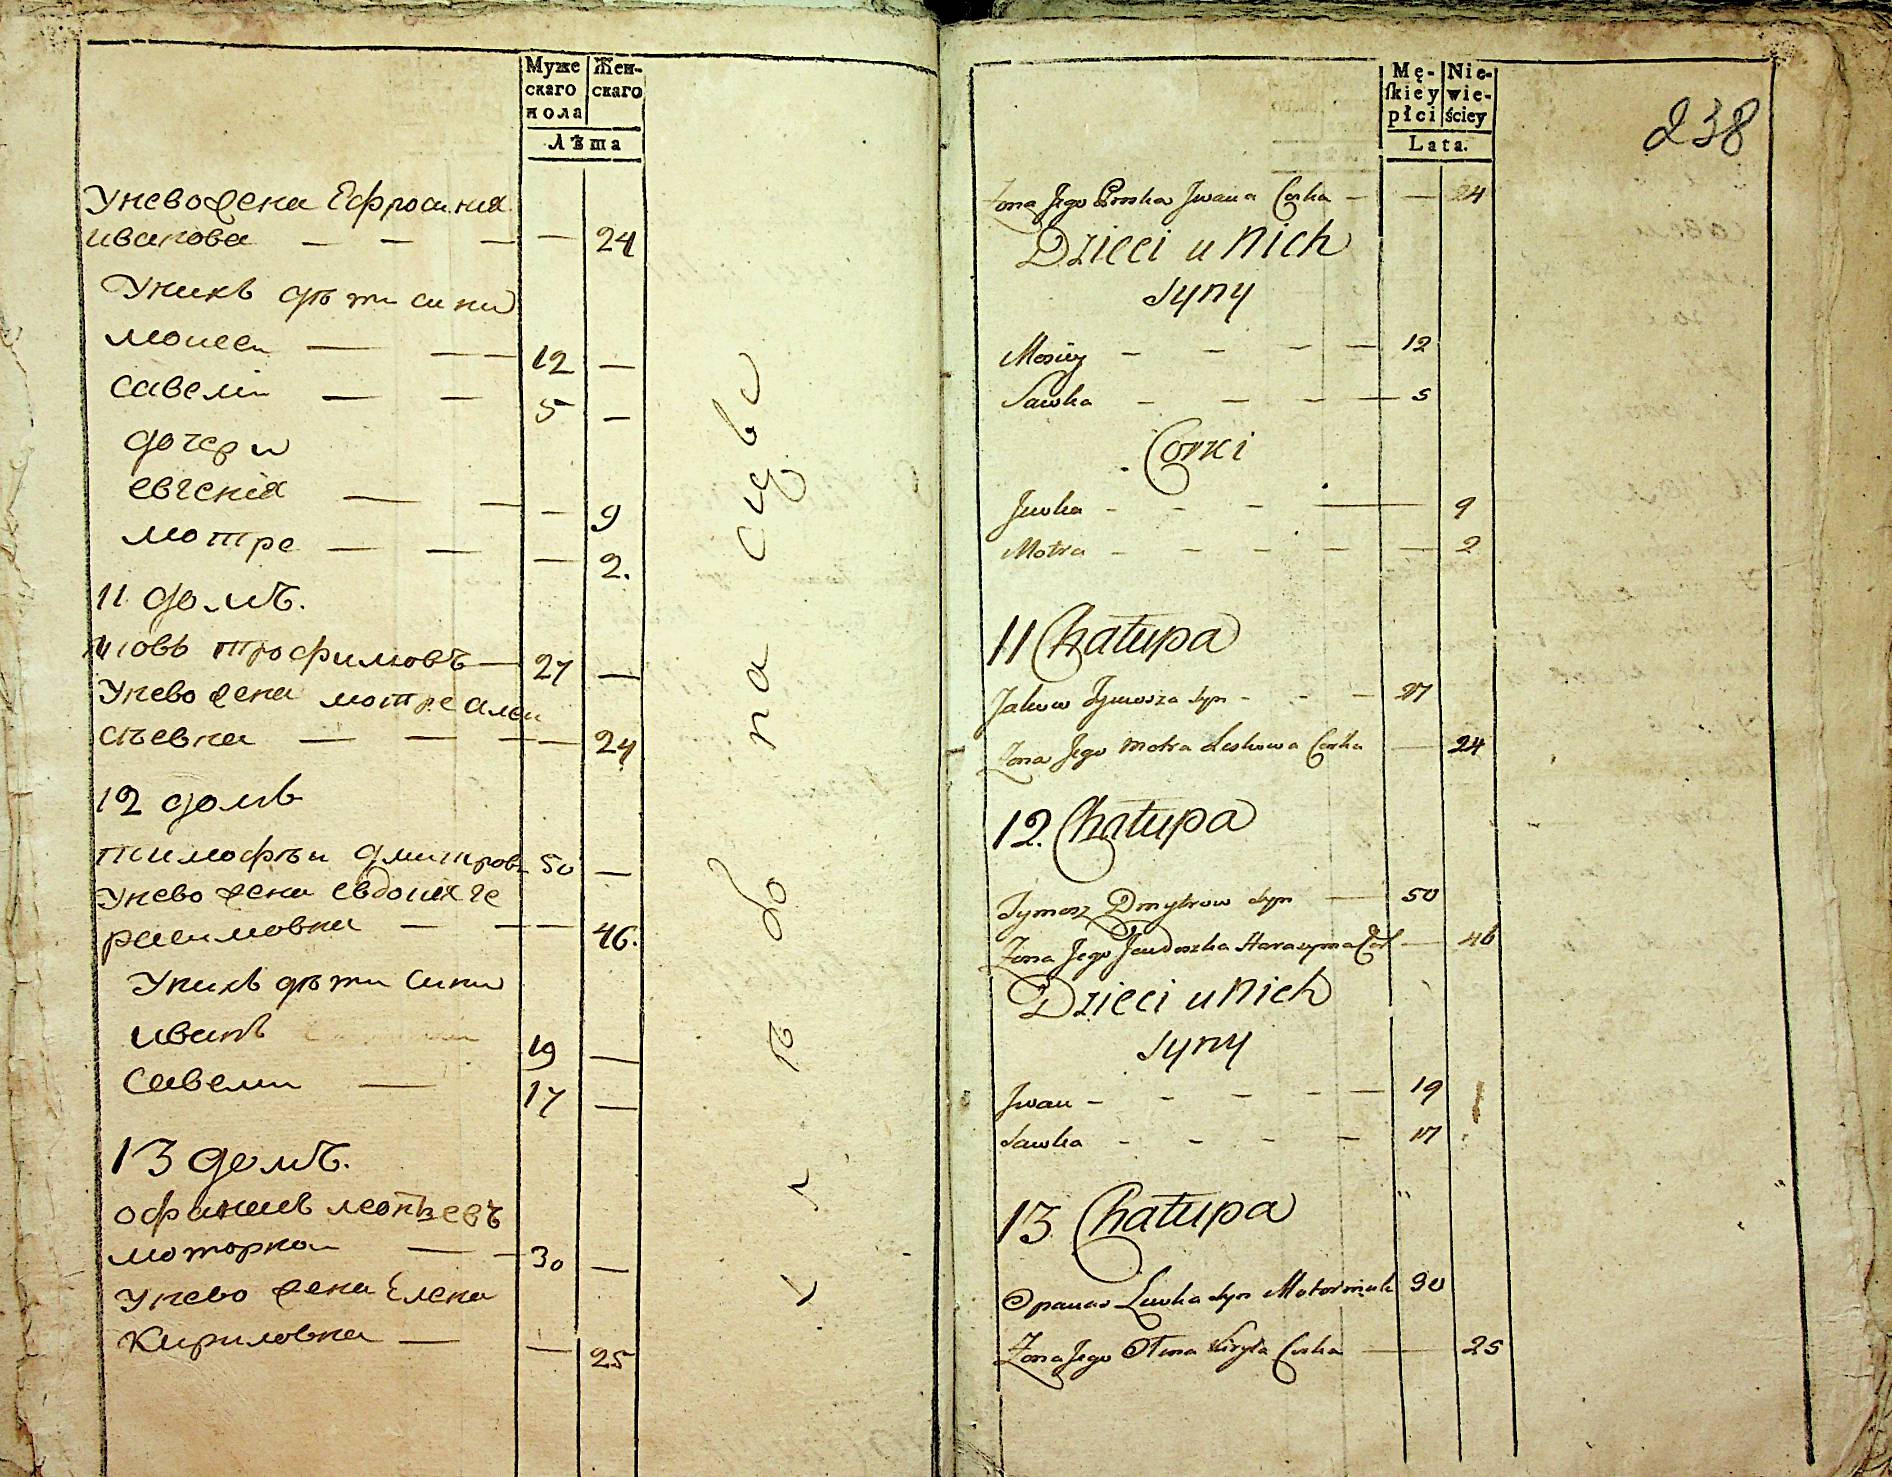 Муже
скаго
пола
Жен-
скаго
Лѣта
Унево жена Ефросиния
иванова — — — — 24
Унихъ дѣти сини
моисеи — — — 12 —
савелiи — — 5 —
дочери
евгенiя — — — 9
мотре — — — 2.
11 домъ.
иовъ трофимовъ — 27 —
Унево жена мотре алек
сѣевна — — — — 24
12 домъ
тимофѣи дмитровъ 50 —
Унево жена евдокия ге
расимовна — — — 46.
Унихъ дѣти Сини
иванъ 19 —
Савели — 17 —
13 домъ.
офанасиъ леонтьевъ
моторнои — — 30 —
Унево жена Елена
Кириловна — — 25
238
Mę-
ſkiey
płci
Nie-
wie-
ściey
Lata.
Zona Jego Proska Jwana Corka — — 24
Dzieci u Nich
Syny
Mosiey - - - — 12
Sawka - - - — 5
Corki
Jewka - - - — 9
Motra - - - - — 2
11 Chałupa
Jakow Tymosza syn - - - 27
Zona Jego Motra Leskowa Corka — 24
12. Chałupa
Tymosz Dmytrow syn — 50
Zona Jego Jewdoszka Harasyma Cor — 46
Dzieci u Nich
Syny
Jwan - - - - — 19
Sawka - - - — 17
13 Chałupa
Opanas Lewka syn Motorniak 30
Zona Jego Olena Kiryła Corka — 25